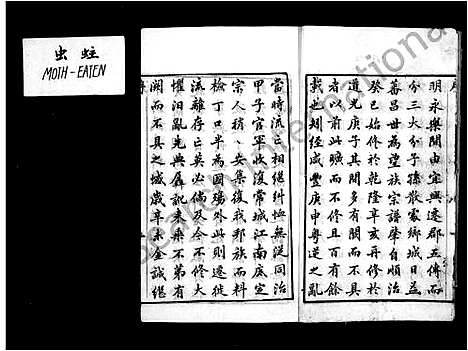 虫蛀
MOTH-EATEN
序
明永樂間由宜興遷郡五傳而
分三大分子孫散處鄉城日益
蕃昌世為望族宗譜肇自順治
癸巳始修於乾隆辛亥再修於
道光庚子其間多有闕而不具
者以前此曠而不修且百有餘
載也矧經咸豐庚申粵逆之亂
當時流亡相繼糾恤無從同治
甲子官軍收復常城江南底定
宗人稍稍安集復我邦族而料
檢丁口半為國殤外此則遷徙
流離存亡莫必倘及今不修大
懼汨亂先典舊訛未乘不弟有
闕而不具之憾歲辛未金誠繼